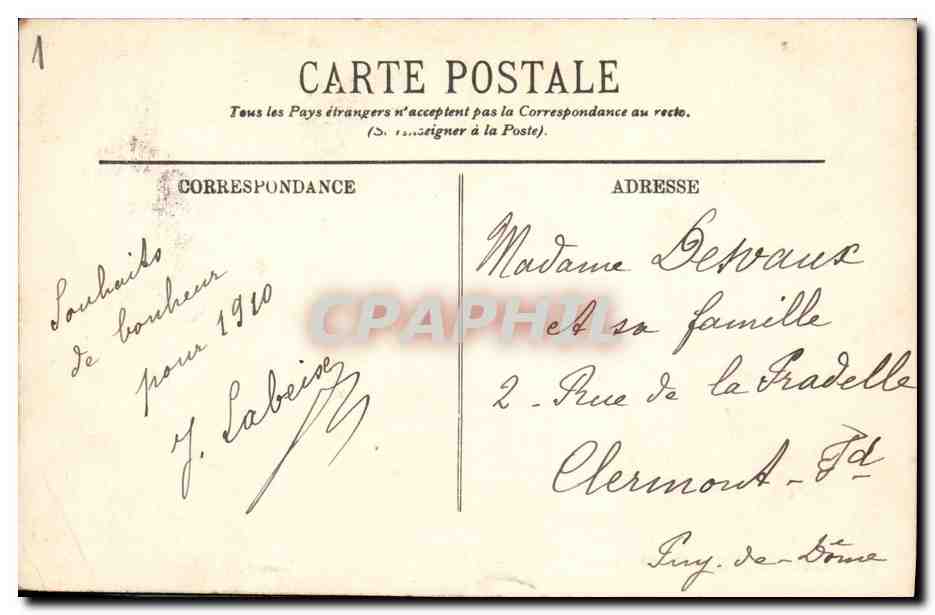 1
CARTE POSTALE
Tous les Pays étrangers n'acceptent pas la Correspondance au recto.
(Se renseigner à la Poste).
CORRESPONDANCE
Souhaits
de bonheur
pour 1910
J. Labeise
ADRESSE
Madame Desvaux
et sa famille
2 - Rue de la Pradelle
Clermont - Fd
Puy-de-Dôme
CPAPHIL